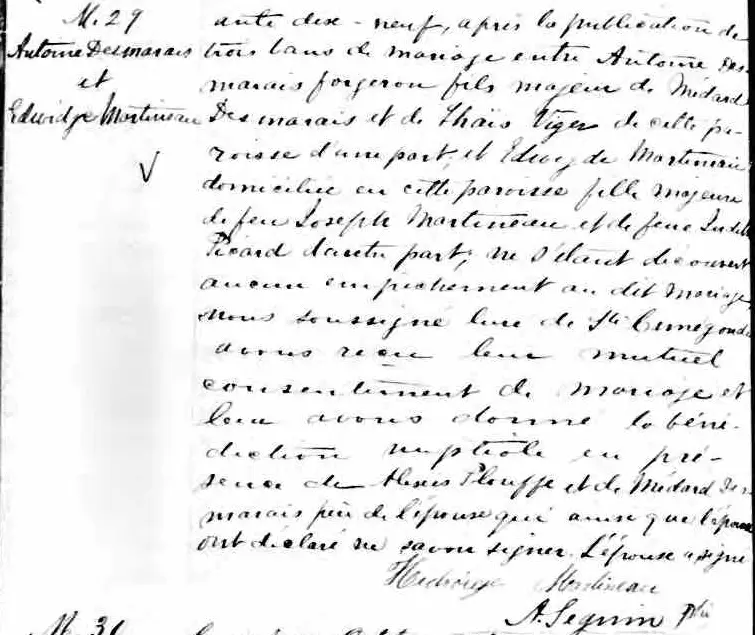 M. 29
Antoine Desmarais
et
Edwidge Martineau
ante dix-neuf, après la publication de
trois bans de mariage entre Antoine Des
marais forgeron fils majeur de Médard
Desmarais et de Thaïs Viger de cette pa-
roisse d'une part; et Edwidge Martineau
domiciliée en cette paroisse fille majeure
de feu Joseph Martineau et de feue Judith
Picard d'autre part; ne s'étant découvert
aucun empêchement au dit mariage
nous soussigné curé de Ste Cunégonde
avons reçu leur mutuel
consentement de mariage et
leur avons donné la béné-
diction nuptiale en pré-
sence de Alexis Plouffe et de Médard Des
marais père de l'épouse qui ainsi que l'époux
ont déclaré ne savoir signer. L'épouse a signé
Hedwidge Martineau
A. Seguin Ptre
M. 30